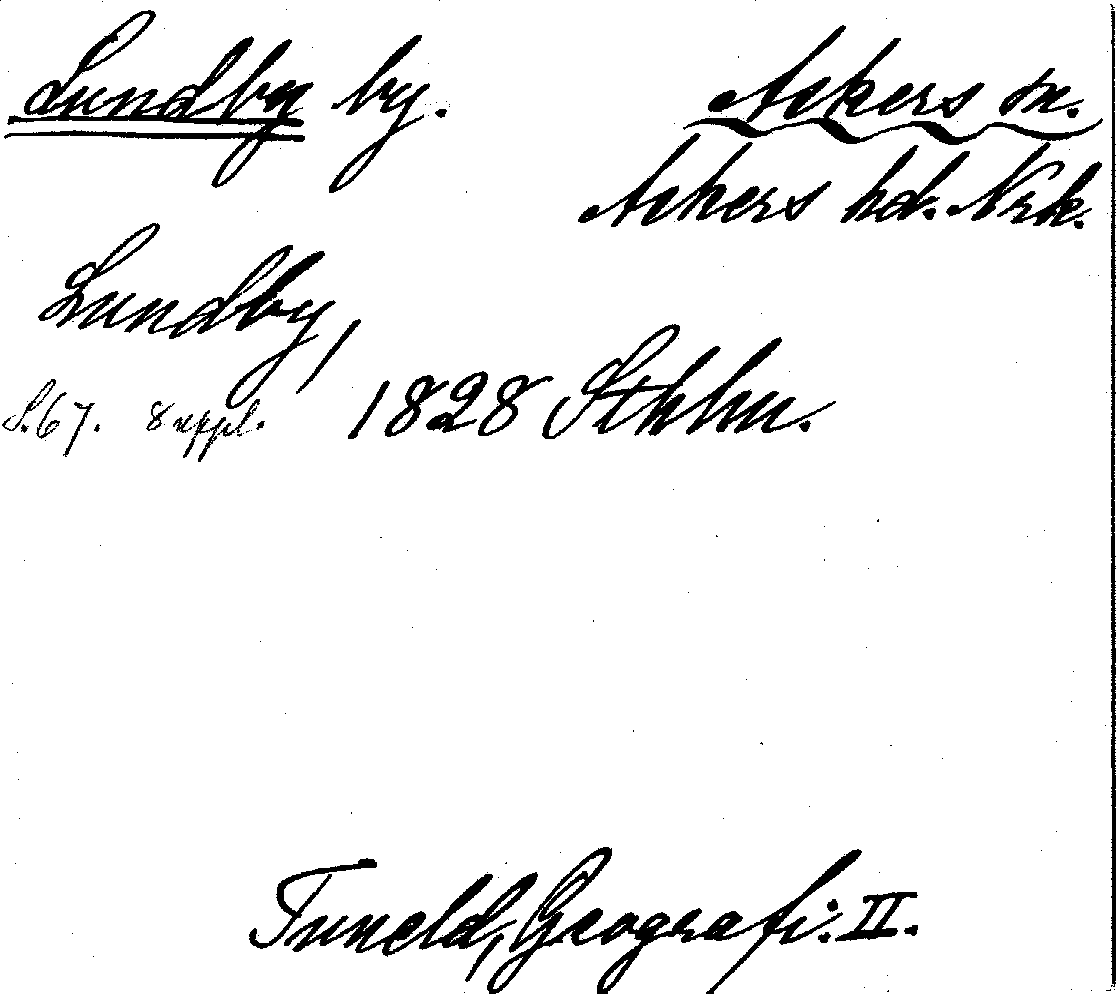 Lundby by. Askers sn.
Askers hd. Nrk.
Lundby,
S. 67. Suppl. 1828 Sthlm.
Tuneld, Geografi: II.